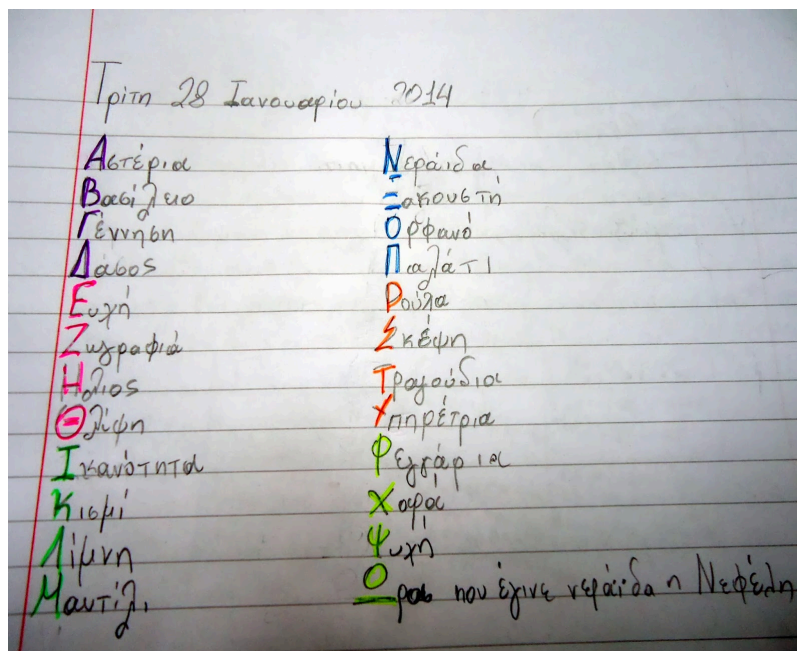 Τρίτη 28 Ιανουαρίου 2014
Αστέρια
Βασίλειο
Γέννηση
Δάσος
Ευχή
Ζωγραφιά
Ηλιος
Θλίψη
Ικανότητα
Κισμί
Λίμνη
Μαντίλι
Νεράιδα
Ξακουστή
Ορφανό
Παλάτι
Ρούλα
Σκέψη
Τραγούδια
Υπηρέτρια
Φεγγάρια
Χαρά
Ψυχή
Ωρα που έγινε νεράιδα η Νεφέλη